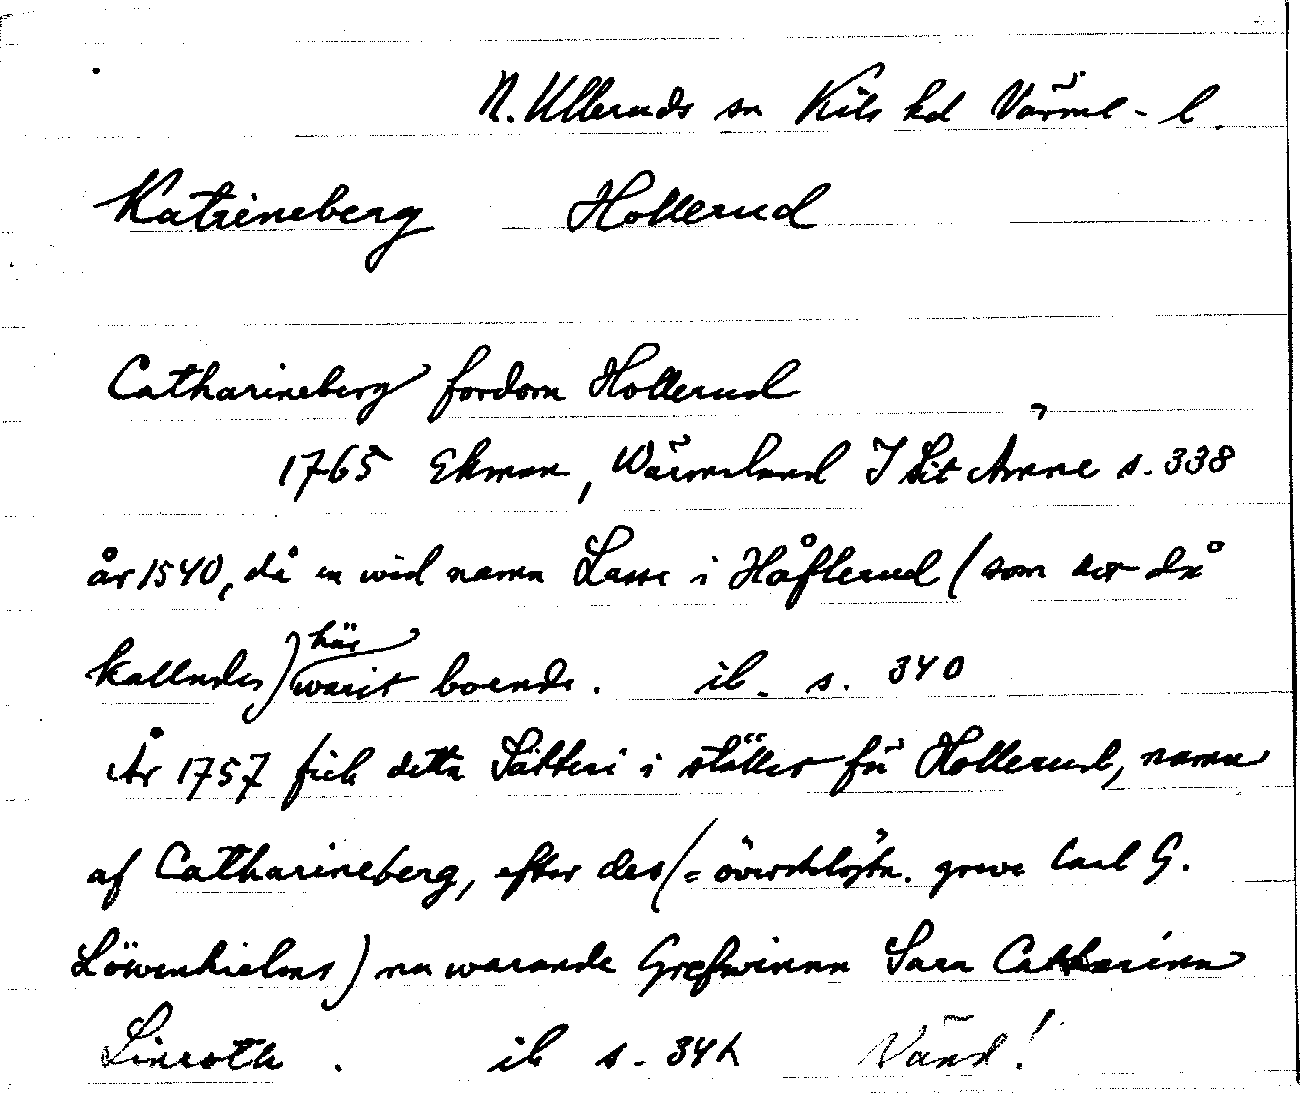 N. Ulleruds sn Kils hd Värml - l.
Katrineberg Hollerud
Catharineberg fordom Hollerud
1765 Ekman, Wärmeland I sit Ämne s. 338
år 1540, då en wid namn Lasse i Håflerud (som det då
kallades) här warit boende. ib. s. 340
År 1757 fick detta Sätteri i stället för Hollerud, namn
af Catharineberg, efter des (= överstelöjtn. greve Carl G.
Löwenhielms) nu warande Grefwinna Sara Catharina
Linroth. ib s. 341
Vänd!